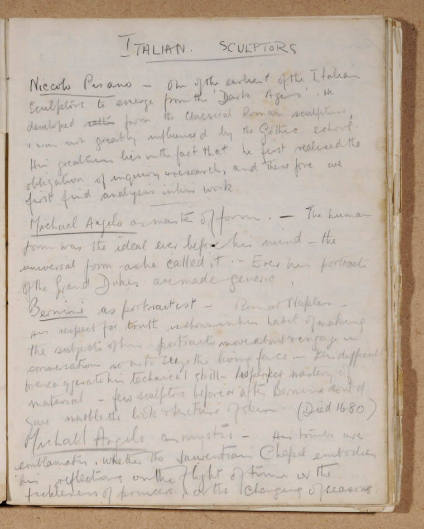 ITALIAN. SCULPTORS
Niccolo Pisano – One of the earliest of the Italian
Sculptors to emerge from the 'Dark Ages'. He
developed from the Classical Roman sculpture,
& was not greatly influenced by the Gothic school.
His greatness lies in the fact that he first realised the
obligation of inquiry & research, and therefore we
first find analysis in his work
Michael Angelo as master of form. – The human
form was the ideal ever before his mind – the
universal form as he called it. – Even his portraits
of the Grand Dukes are made generic.
Bernini as portraitist – Born at Naples –
His respect for truth is shown in his habit of making
the subjects of his portraits move about & engage in
conversation so as to seize the living face –
technical skill – mastery of
material – few sculptors before or after Bernini
gave marble the look & texture of skin. (Died 1680)
Michael Angelo as mystic – His tombs are
emblematic, whether the Laurentian Chapel embodies
his reflections on the flight of time or the
fickleness of princes or the changing of seasons